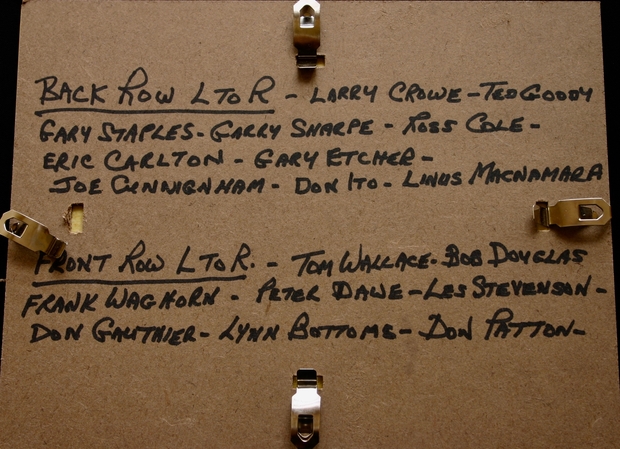 BACK ROW L TO R - LARRY CROWE - TED GOODY
GARY STAPLES - GARRY SHARPE - ROSS COLE -
ERIC CARLTON - GARY ETCHER -
JOE CUNNIGNHAM - DON ITO - LINUS MACNAMARA
FRONT ROW L TO R. - TOM WALLACE - BOB DOUGLAS
FRANK WAGHORN - PETER DAWE - LES STEVENSON -
DON GAUTHIER - LYNN BOTTOMS - DON PATTON -